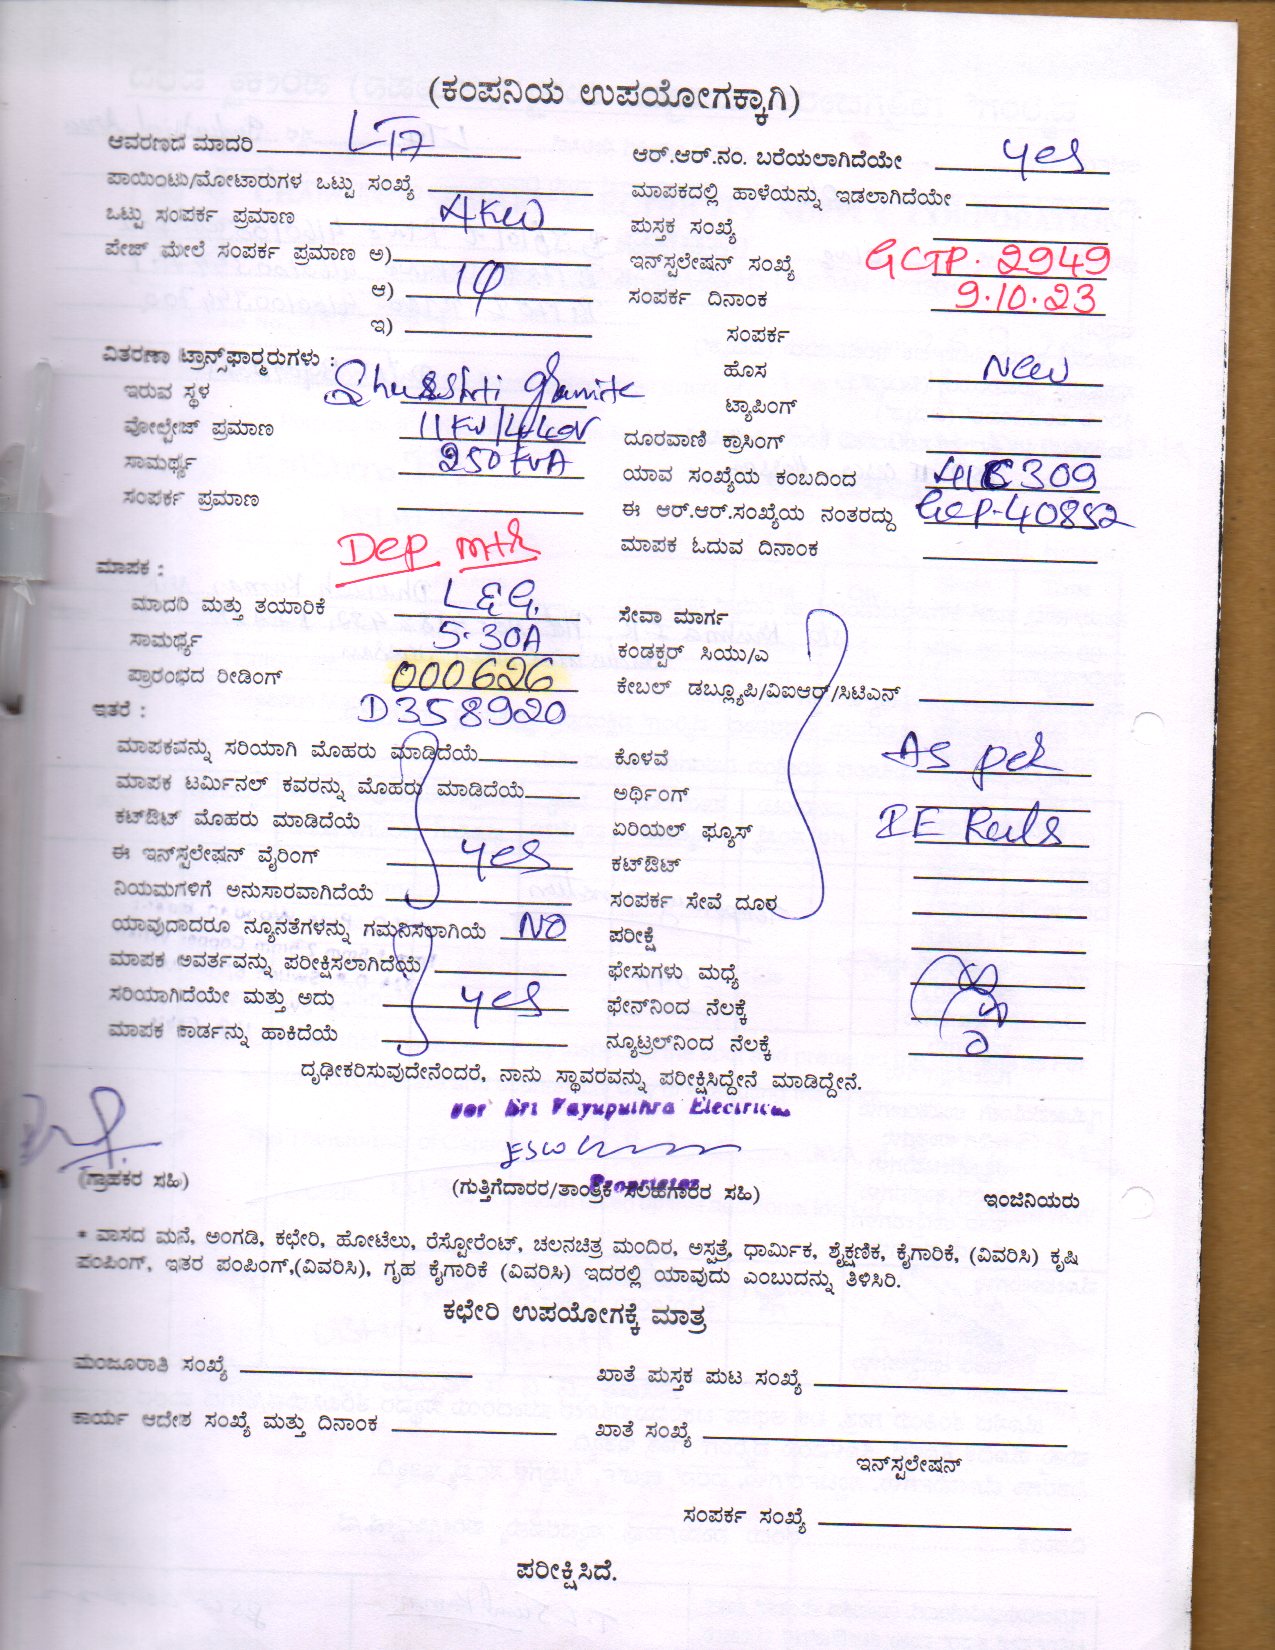 (ಕಂಪನಿಯ ಉಪಯೋಗಕ್ಕಾಗಿ)
ಆವರಣದ ಮಾದರಿ LT7
ಪಾಯಿಂಟು/ಮೋಟಾರುಗಳ ಒಟ್ಟು ಸಂಖ್ಯೆ
ಒಟ್ಟು ಸಂಪರ್ಕ ಪ್ರಮಾಣ 4KW
ಪೇಜ್ ಮೇಲೆ ಸಂಪರ್ಕ ಪ್ರಮಾಣ ಅ)
ಆ) 1φ
ಇ)
ವಿತರಣಾ ಟ್ರಾನ್ಸ್‌ಫಾರ್‍ಮರುಗಳು :
ಇರುವ ಸ್ಥಳ
ವೋಲ್ಟೇಜ್ ಪ್ರಮಾಣ
ಸಾಮರ್ಥ್ಯ 250 KVA
ಸಂಪರ್ಕ ಪ್ರಮಾಣ
Dep mtr
ಮಾಪಕ :
ಮಾದರಿ ಮತ್ತು ತಯಾರಿಕೆ L&G.
ಸಾಮರ್ಥ್ಯ 5-30A
ಪ್ರಾರಂಭದ ರೀಡಿಂಗ್ 000626
ಇತರೆ : D358920
ಮಾಪಕವನ್ನು ಸರಿಯಾಗಿ ಮೊಹರು ಮಾಡಿದೆಯೆ
ಮಾಪಕ ಟರ್ಮಿನಲ್ ಕವರನ್ನು ಮೊಹರು ಮಾಡಿದೆಯೆ
ಕಟ್‌ಔಟ್ ಮೊಹರು ಮಾಡಿದೆಯೆ
ಈ ಇನ್‌ಸ್ಟಲೇಷನ್ ವೈರಿಂಗ್ yes
ನಿಯಮಗಳಿಗೆ ಅನುಸಾರವಾಗಿದೆಯೆ
ಯಾವುದಾದರೂ ನ್ಯೂನತೆಗಳನ್ನು ಗಮನಿಸಲಾಗಿಯೆ NO
ಮಾಪಕ ಅವರ್ತವನ್ನು ಪರೀಕ್ಷಿಸಲಾಗಿದೆಯೆ
ಸರಿಯಾಗಿದೆಯೇ ಮತ್ತು ಅದು yes
ಮಾಪಕ ಕಾರ್ಡನ್ನು ಹಾಕಿದೆಯೆ
ಆರ್.ಆರ್.ನಂ. ಬರೆಯಲಾಗಿದೆಯೇ yes
ಮಾಪಕದಲ್ಲಿ ಹಾಳೆಯನ್ನು ಇಡಲಾಗಿದೆಯೇ
ಪುಸ್ತಕ ಸಂಖ್ಯೆ
ಇನ್‌ಸ್ಟಲೇಷನ್ ಸಂಖ್ಯೆ GCTP. 2949
ಸಂಪರ್ಕ ದಿನಾಂಕ 9.10.23
ಸಂಪರ್ಕ
ಹೊಸ New
ಟ್ಯಾಪಿಂಗ್
ದೂರವಾಣಿ ಕ್ರಾಸಿಂಗ್
ಯಾವ ಸಂಖ್ಯೆಯ ಕಂಬದಿಂದ
ಈ ಆರ್.ಆರ್.ಸಂಖ್ಯೆಯ ನಂತರದ್ದು GCP-40852
ಮಾಪಕ ಓದುವ ದಿನಾಂಕ
ಸೇವಾ ಮಾರ್ಗ
ಕಂಡಕ್ಟರ್ ಸಿಯು/ಎ
ಕೇಬಲ್ ಡಬ್ಲ್ಯೂಪಿ/ವಿಐಆರ್/ಸಿಟಿಎನ್
ಕೊಳವೆ As per
ಅರ್ಥಿಂಗ್
ಏರಿಯಲ್ ಫ್ಯೂಸ್ IE Ruls
ಕಟ್‌ಔಟ್
ಸಂಪರ್ಕ ಸೇವೆ ದೂರ
ಪರೀಕ್ಷೆ
ಫೇಸುಗಳು ಮಧ್ಯೆ
ಫೇನ್‌ನಿಂದ ನೆಲಕ್ಕೆ
ನ್ಯೂಟ್ರಲ್‌ನಿಂದ ನೆಲಕ್ಕೆ
ದೃಢೀಕರಿಸುವುದೇನೆಂದರೆ, ನಾನು ಸ್ಥಾವರವನ್ನು ಪರೀಕ್ಷಿಸಿದ್ದೇನೆ ಮಾಡಿದ್ದೇನೆ.
For Sri Vayuputhra Electricals
Proprietor
(ಗ್ರಾಹಕರ ಸಹಿ)
(ಗುತ್ತಿಗೆದಾರರ/ತಾಂತ್ರಿಕ ಸಲಹೆಗಾರರ ಸಹಿ)
ಇಂಜಿನಿಯರು
* ವಾಸದ ಮನೆ, ಅಂಗಡಿ, ಕಛೇರಿ, ಹೋಟೆಲು, ರೆಸ್ಟೋರೆಂಟ್, ಚಲನಚಿತ್ರ ಮಂದಿರ, ಅಸ್ಪತ್ರೆ, ಧಾರ್ಮಿಕ, ಶೈಕ್ಷಣಿಕ, ಕೈಗಾರಿಕೆ, (ವಿವರಿಸಿ) ಕೃಷಿ
ಪಂಪಿಂಗ್, ಇತರ ಪಂಪಿಂಗ್,(ವಿವರಿಸಿ), ಗೃಹ ಕೈಗಾರಿಕೆ (ವಿವರಿಸಿ) ಇದರಲ್ಲಿ ಯಾವುದು ಎಂಬುದನ್ನು ತಿಳಿಸಿರಿ.
ಕಛೇರಿ ಉಪಯೋಗಕ್ಕೆ ಮಾತ್ರ
ಮಂಜೂರಾತಿ ಸಂಖ್ಯೆ
ಖಾತೆ ಪುಸ್ತಕ ಪುಟ ಸಂಖ್ಯೆ
ಕಾರ್ಯ ಆದೇಶ ಸಂಖ್ಯೆ ಮತ್ತು ದಿನಾಂಕ
ಖಾತೆ ಸಂಖ್ಯೆ
ಇನ್‌ಸ್ಟಲೇಷನ್
ಸಂಪರ್ಕ ಸಂಖ್ಯೆ
ಪರೀಕ್ಷಿಸಿದೆ.